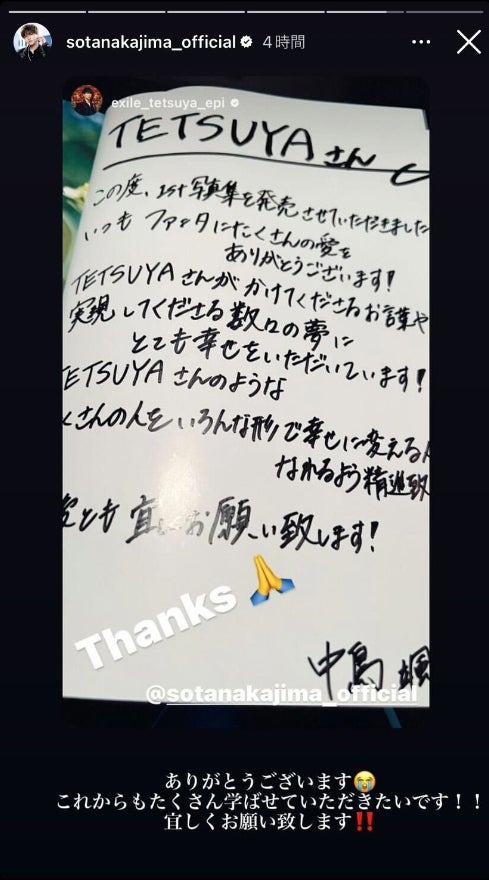 sotanakajima_official 4時間
exile_tetsuya_epi
TETSUYAさん
この度、1st写真集を発売させていただきました
いつも ファンタにたくさんの愛を
ありがとうございます!
TETSUYAさんが かけてくださるお言葉や
実現してくださる数々の夢に
とても幸せをいただいています!
ETSUYAさんのような
くさんの人を いろんな形で幸せに変える
なれるよう精進致
とも 宜 お願い致します!
Thanks 🙏
中島 颯
@sotanakajima_official
ありがとうございます😭
これからもたくさん学ばせていただきたいです!!
宜しくお願い致します‼️